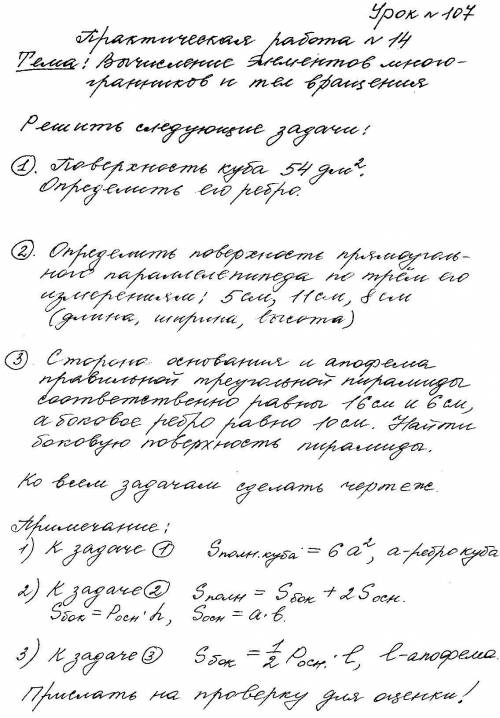 Урок № 107
Практическая работа № 14
Тема: Вычисление элементов много-
гранников и тел вращения
Решить следующие задачи:
1. Поверхность куба 54 дм².
Определить его ребро.
2. Определить поверхность прямоуголь-
ного параллелепипеда по трём его
измерениям: 5 см, 11 см, 8 см
(длина, ширина, высота)
3 Сторона основания и апофема
правильной треугольной пирамиды
соответственно равны 16 см и 6 см,
а боковое ребро равно 10 см. Найти
боковую поверхность пирамиды.
Ко всем задачам сделать чертеж.
Примечание:
1) К задаче 1 Sполн.куба = 6a², a-ребро куба
2) К задаче 2 Sполн = Sбок + 2Sосн.
Sбок = Pосн·h, Sосн = a·b.
3) К задаче 3 Sбок = 1/2 Pосн·l, l-апофема.
Прислать на проверку для оценки!